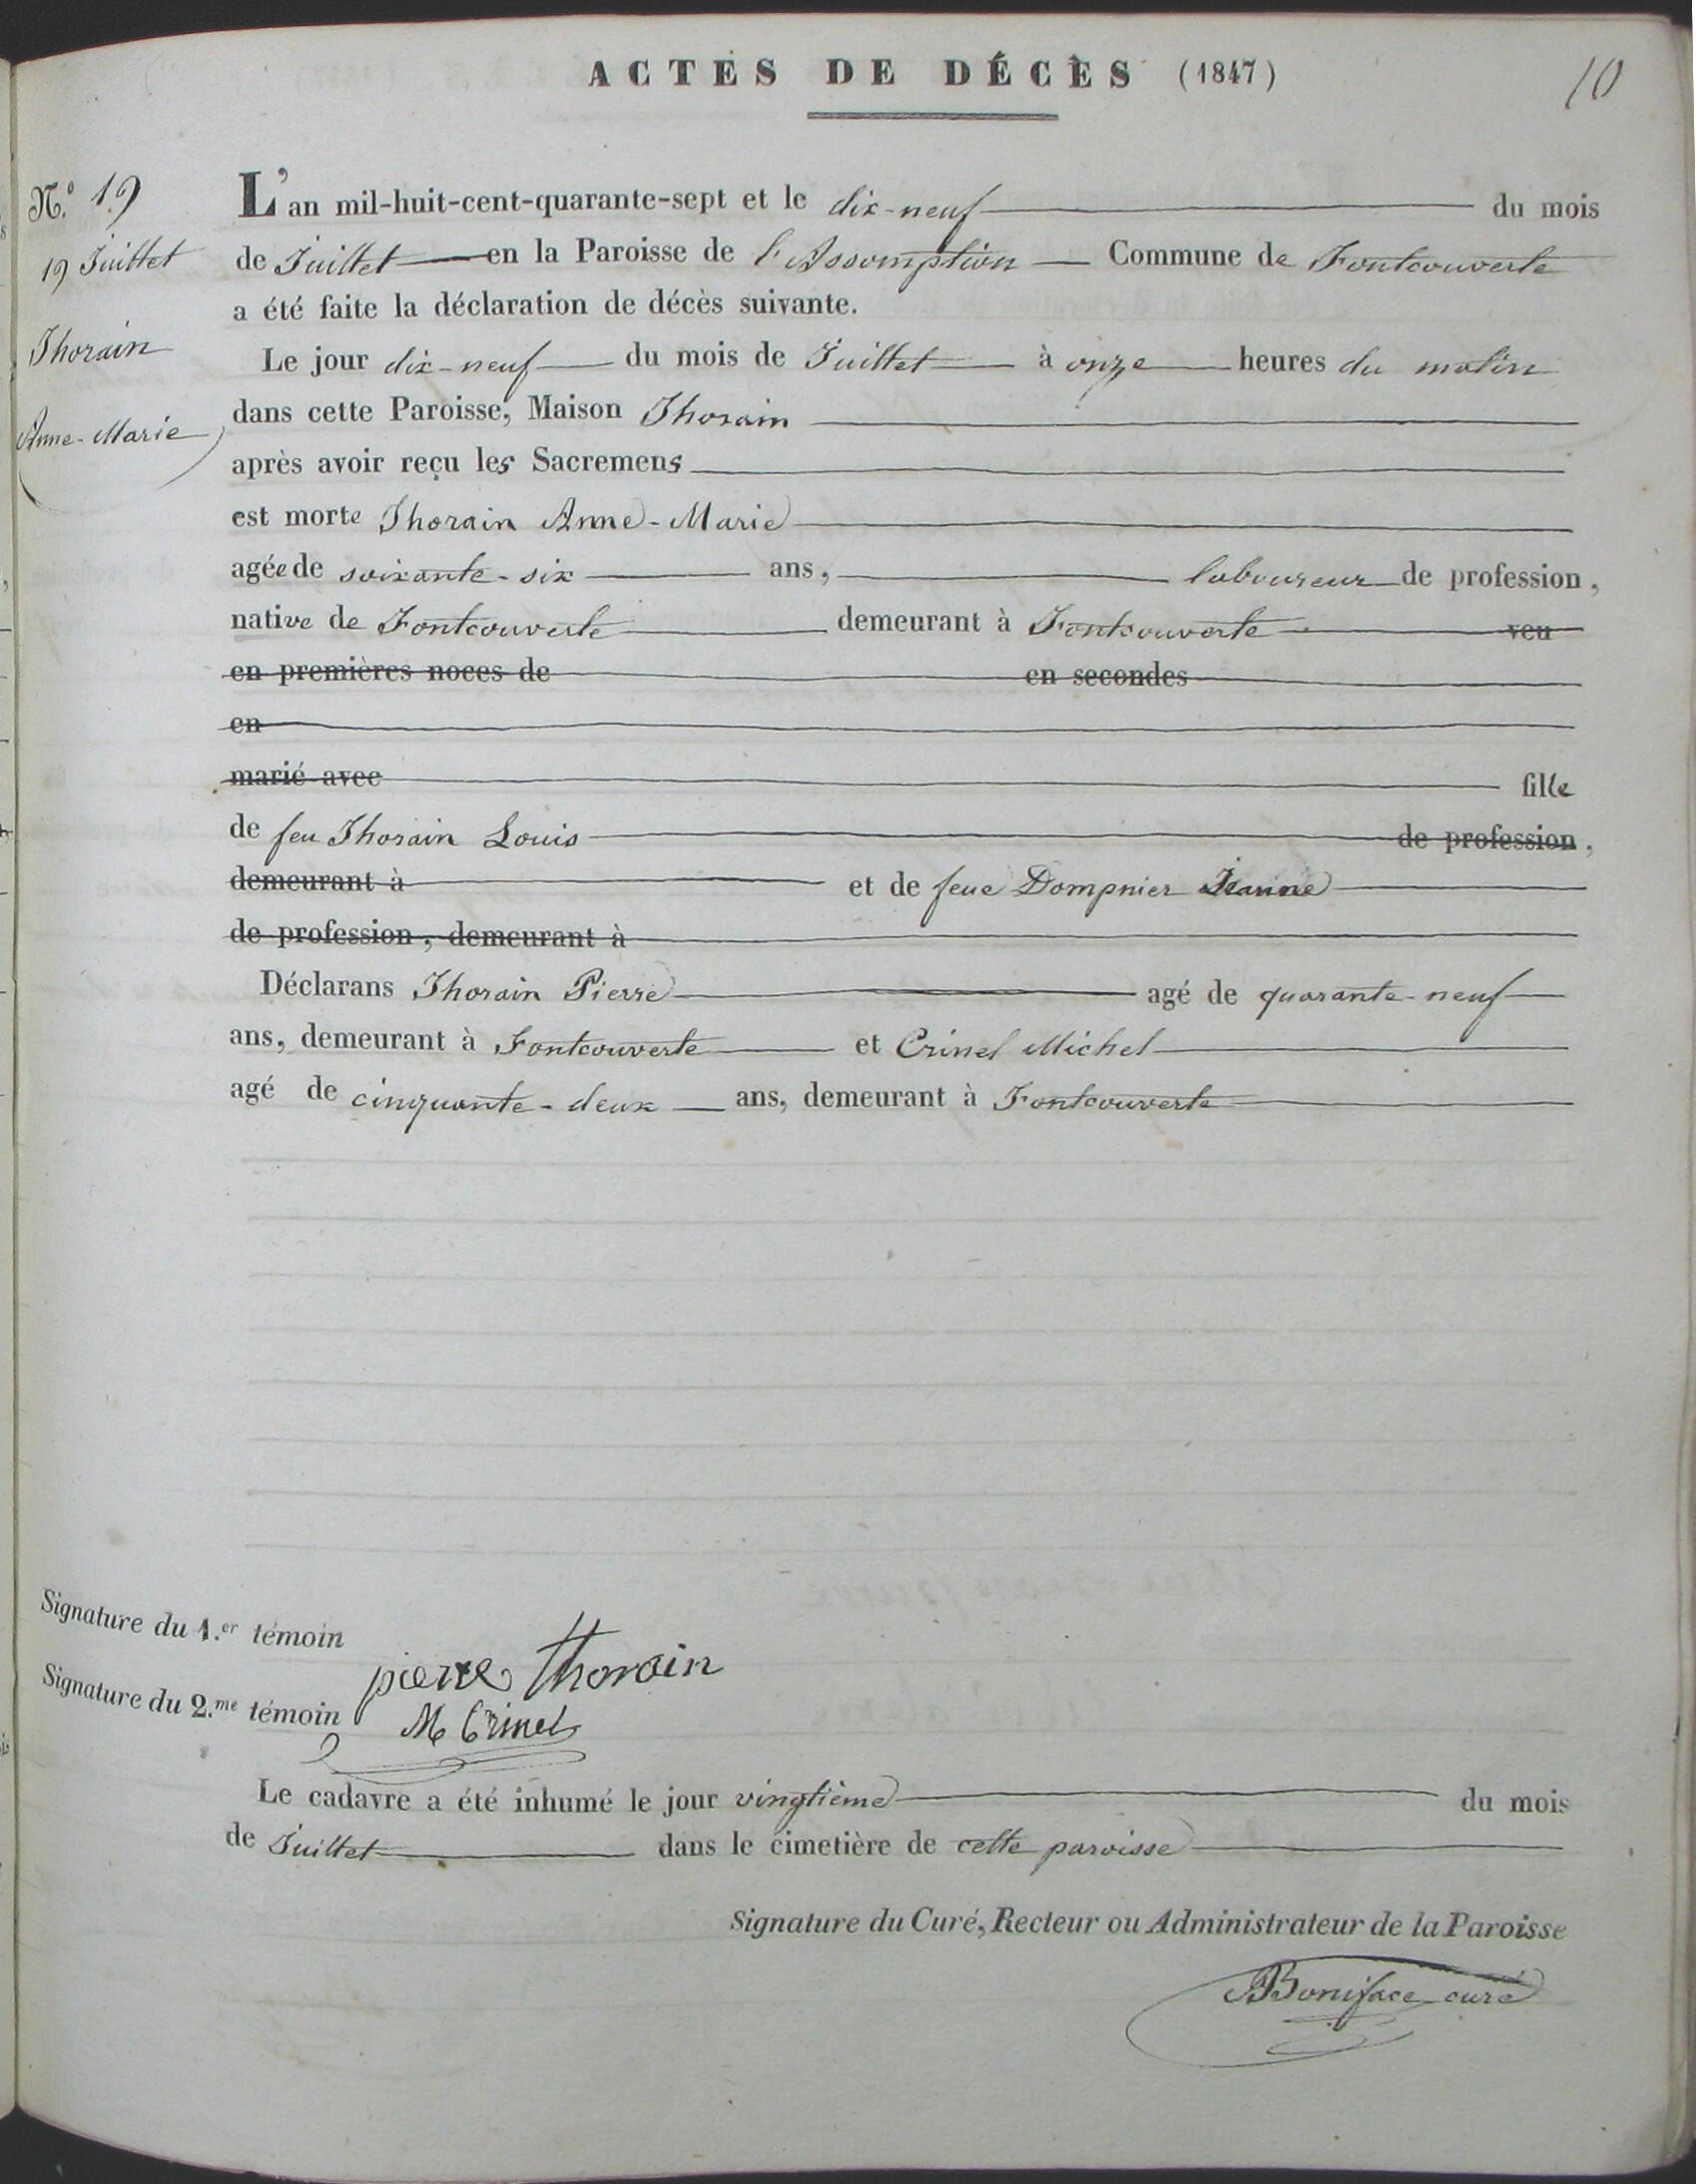 ACTES DE DÉCÈS (1847)
10
N.º 19
19 Juillet
Thorain
Anne-Marie
L'an mil-huit-cent-quarante-sept et le dix-neuf du mois
de Juillet en la Paroisse de l'Assomption Commune de Fontcouverte
a été faite la déclaration de décès suivante.
Le jour dix-neuf du mois de Juillet à onze heures du matin
dans cette Paroisse, Maison Thorain
après avoir reçu les Sacremens
est morte Thorain Anne-Marie
agée de soixante-six ans, laboureur de profession,
native de Fontcouverte demeurant à Fontcouverte veu
en premières noces de en secondes
en
marié avec fille
de feu Thorain Louis de profession,
demeurant à et de feue Dompnier Jeanne
de profession, demeurant à
Déclarans Thorain Pierre agé de quarante-neuf
ans, demeurant à Fontcouverte et Crinel Michel
agé de cinquante-deux ans, demeurant à Fontcouverte
Signature du 1.er témoin
pierre thorain
Signature du 2.me témoin
M Crinel
Le cadavre a été inhumé le jour vingtième du mois
de Juillet dans le cimetière de cette paroisse
Signature du Curé, Recteur ou Administrateur de la Paroisse
Boniface curé